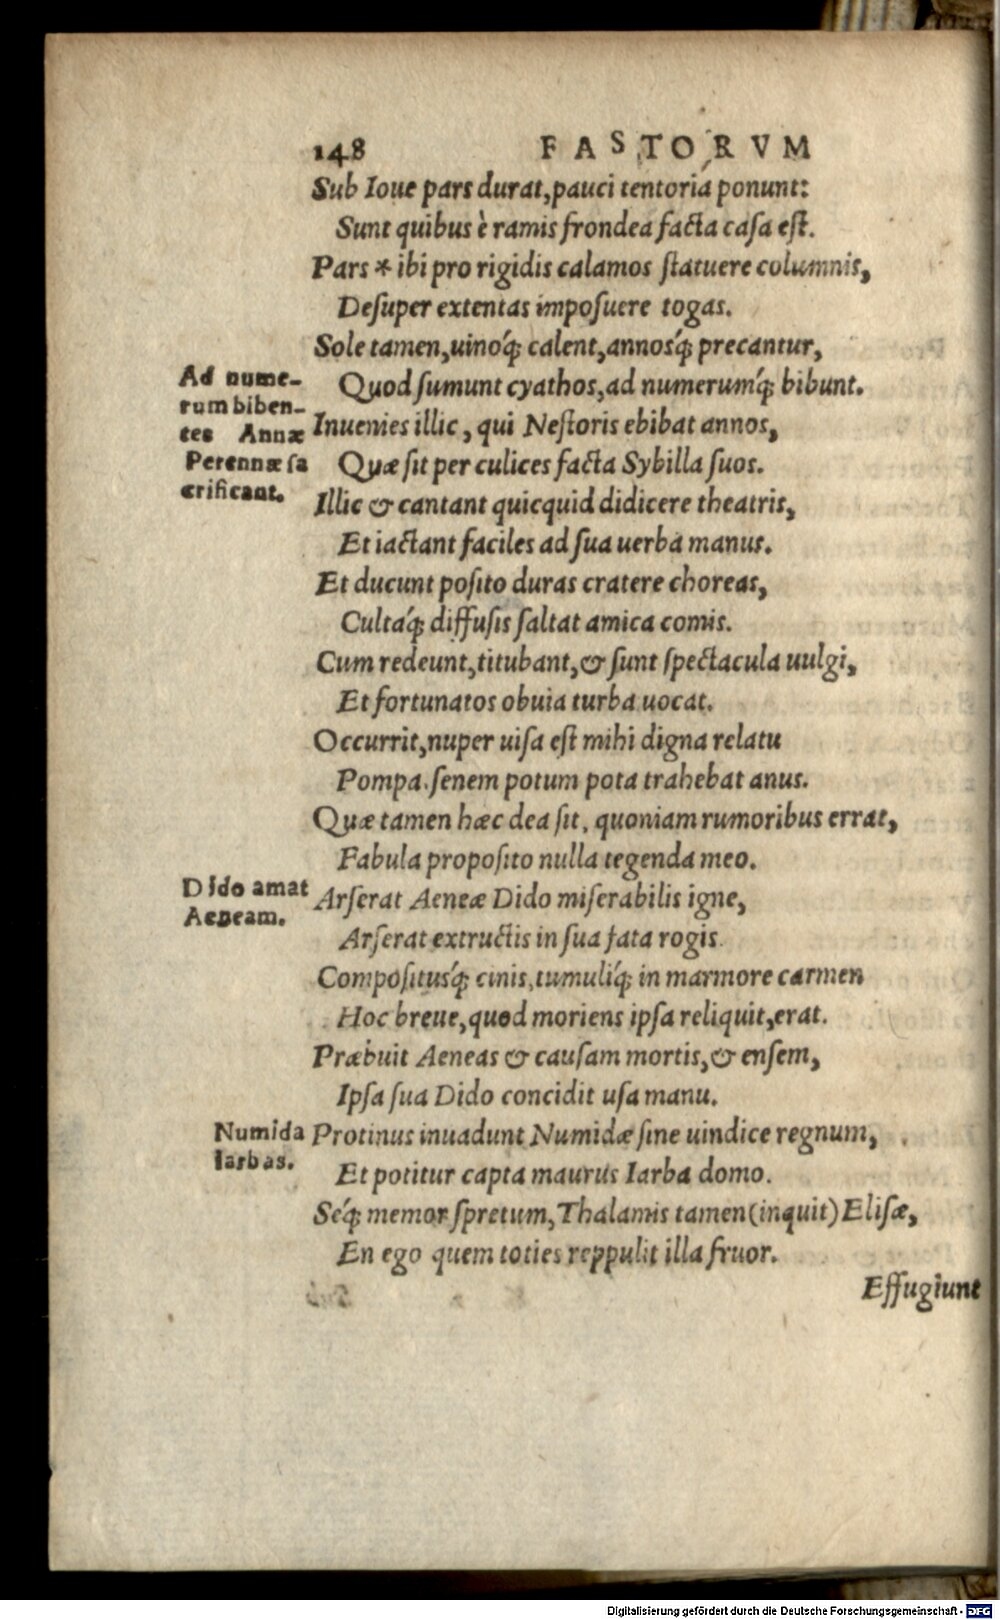 148 FASTORVM
Sub Ioue pars durat,pauci tentoria ponunt:
Sunt quibus è ramis frondea facta casa est.
Pars * ibi pro rigidis calamos statuere columnis,
Desuper extentas imposuere togas.
Sole tamen,uinoq́; calent,annosq́; precantur,
Ad nume-
rum biben-
tes Annæ
Perennæ sa
crificant.
Quod sumunt cyathos,ad numerumq́; bibunt.
Inuenies illic, qui Nestoris ebibat annos,
Quæ sit per culices facta Sybilla suos.
Illic & cantant quicquid didicere theatris,
Et iactant faciles ad sua uerba manus.
Et ducunt posito duras cratere choreas,
Cultaq́; diffusis saltat amica comis.
Cum redeunt,titubant,& sunt spectacula uulgi,
Et fortunatos obuia turba uocat.
Occurrit,nuper uisa est mihi digna relatu
Pompa.senem potum pota trahebat anus.
Quæ tamen hæc dea sit, quoniam rumoribus errat,
Fabula proposito nulla tegenda meo.
Dido amat
Aeneam.
Arserat Aeneæ Dido miserabilis igne,
Arserat extructis in sua fata rogis.
Compositusq́; cinis,tumuliq́; in marmore carmen
Hoc breue,quod moriens ipsa reliquit,erat.
Præbuit Aeneas & causam mortis,& ensem,
Ipsa sua Dido concidit usa manu.
Numida
Iarbas.
Protinus inuadunt Numidæ sine uindice regnum,
Et potitur capta maurus Iarba domo.
Seq́; memor spretum,Thalamis tamen(inquit)Elisæ,
En ego quem toties reppulit illa fruor.
Effugiunt
Digitalisierung gefördert durch die Deutsche Forschungsgemeinschaft - DFG